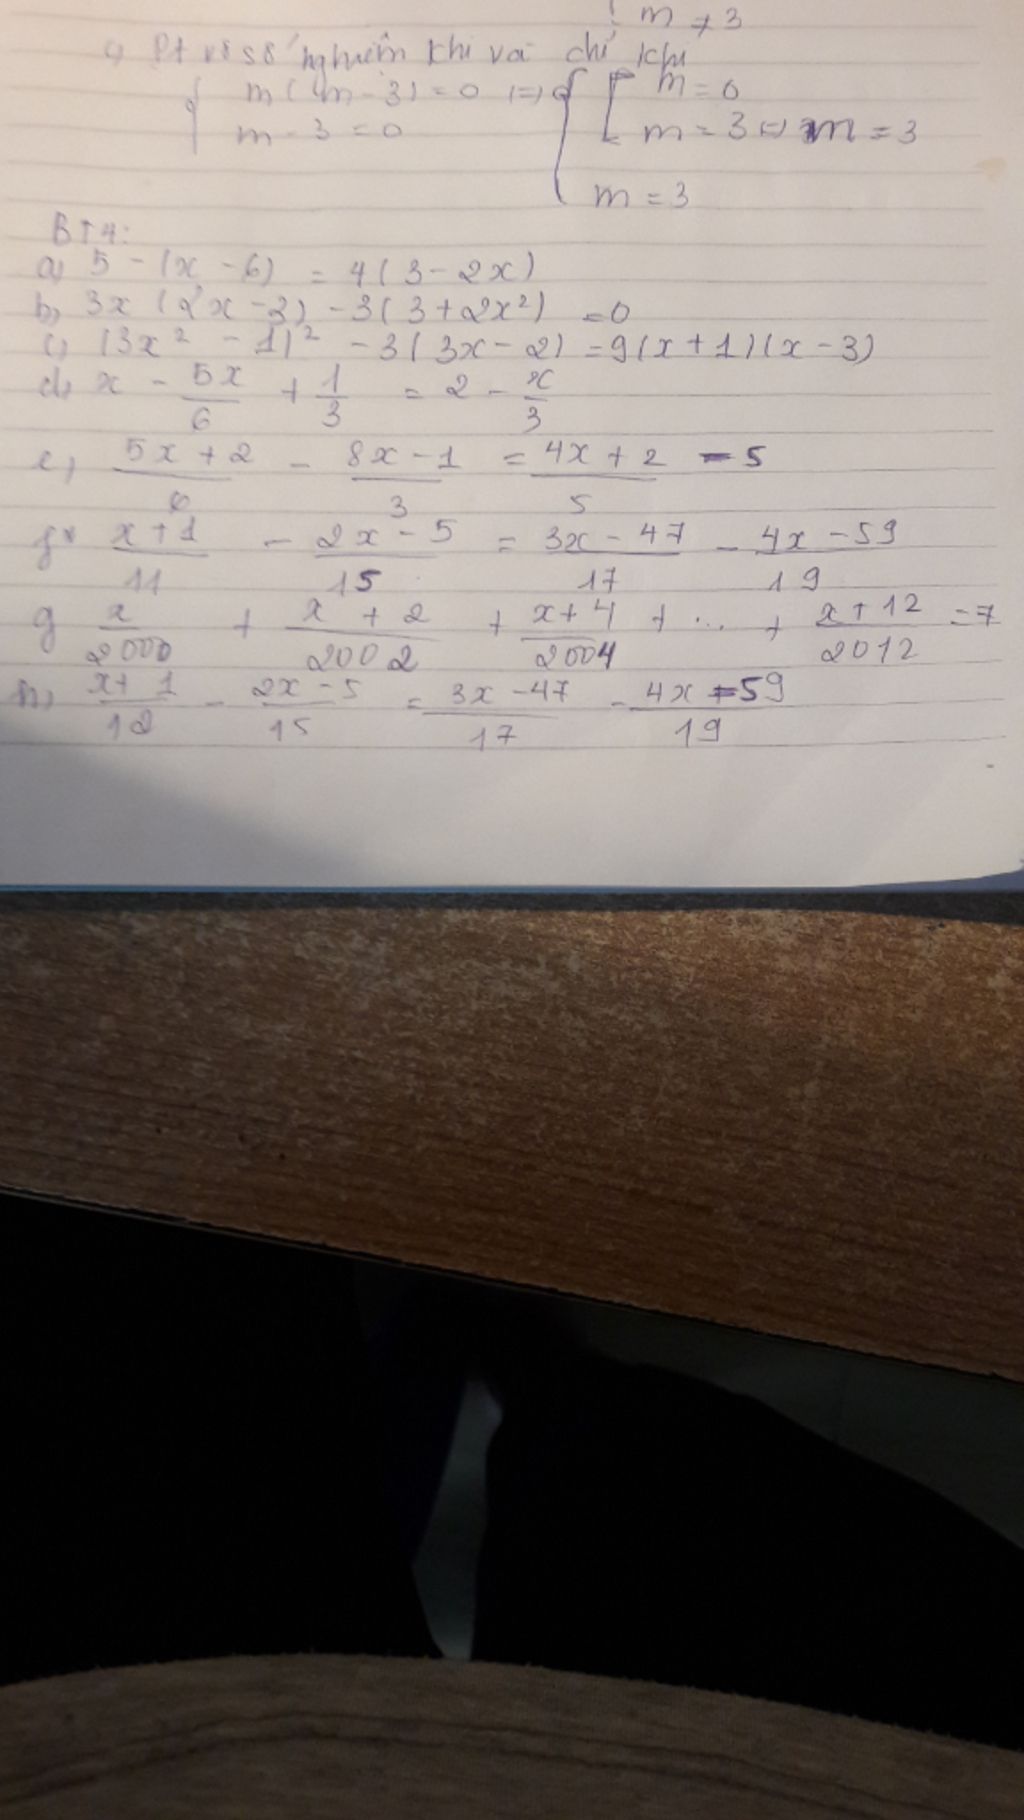 m ≠ 3
c) Pt vô số nghiệm khi và chỉ khi
{ m(m-3) = 0 <=> { [ m = 0
m - 3 = 0 m = 3 <=> m = 3
m = 3
BT4:
a) 5 - (x - 6) = 4(3 - 2x)
b) 3x(2x - 3) - 3(3 + 2x²) = 0
c) (3x² - 1)² - 3(3x - 2) = 9(x + 1)(x - 3)
d) x - 5x/6 + 1/3 = 2 - x/3
e) (5x + 2)/6 - (8x - 1)/3 = (4x + 2)/5 - 5
f* (x + 1)/11 - (2x - 5)/15 = (3x - 47)/17 - (4x - 59)/19
g x/2000 + (x + 2)/2002 + (x + 4)/2004 + ... + (x + 12)/2012 = 7
h) (x + 1)/12 - (2x - 5)/15 = (3x - 47)/17 - (4x - 59)/19